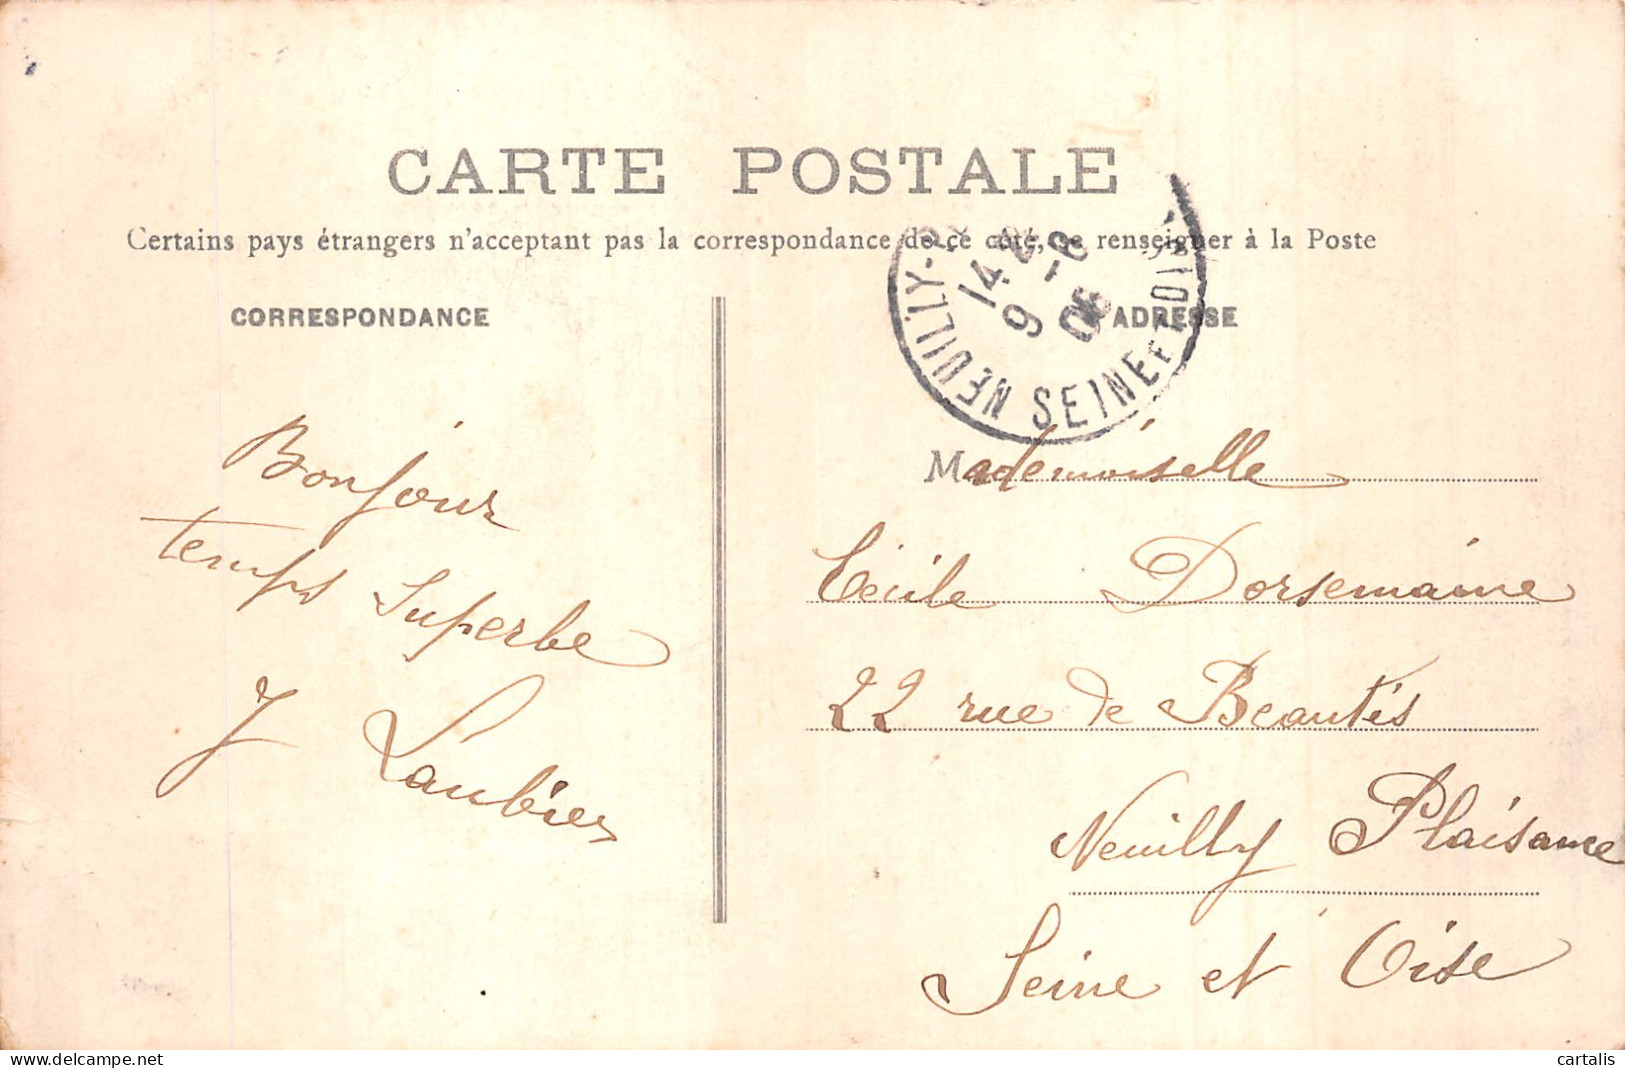 CARTE POSTALE
Certains pays étrangers n'acceptant pas la correspondance de ce côté, se renseigner à la Poste
CORRESPONDANCE
ADRESSE
NEUILLY-P
SEINE ET OISE
14
9 -6
06
Bonjour
temps Superbe
J Laubier
Mademoiselle
Cécile Dorsemaine
22 rue de Beautés
Neuilly Plaisance
Seine et Oise
delcampe.net
cartalis